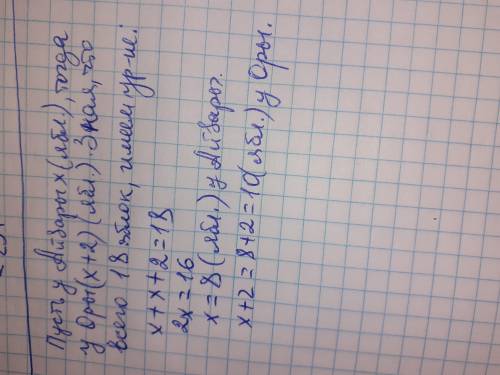 Пусть у Айзары х (ябл.), тогда
у Оры (х+2) (ябл.). Зная, что
всего 18 яблок, имеем ур-ие:
х+х+2=18
2х=16
х=8 (ябл.) у Айзары.
х+2=8+2=10(ябл.) у Оры.